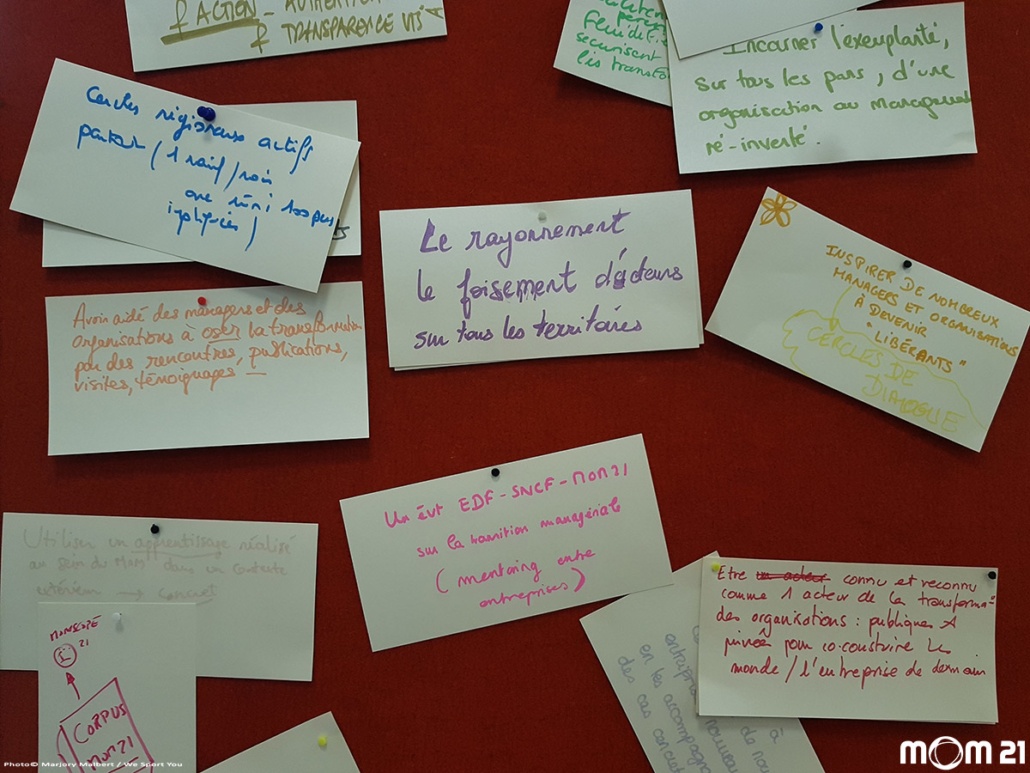 ACTION - AUTHENTI
& TRANSPARENCE VIS
sécurisent
les transfo
Incarner l'exemplarité,
sur tous les pans, d'une
organisation au management
ré-inventé.
Cercles régionaux actifs
partout (1 réunif/mois
avec mini 100 pers
impliquées)
Le rayonnement
le foisement d'acteurs
sur tous les territoires
INSPIRER DE NOMBREUX
MANAGERS ET ORGANISATIONS
À DEVENIR
"LIBÉRANTS"
CERCLES DE
DIALOGUE
Avoir aidé des managers et des
organisations à oser la transformation
par des rencontres, publications,
visites, témoignages -
Un évt EDF-SNCF-MOM21
sur la transition managériale
(mentoring entre
entreprises)
Utiliser un apprentissage réalisé
au sein du MOM dans un contexte
extérieur → concret
21
CORPUS
MOM 21
Etre un acteur connu et reconnu
comme 1 acteur de la transforma°
des organisations : publiques &
privées pour co-construire le
monde / l'entreprise de demain
à
de nou
nouveau
en les accompagna
des cas concrets
Photo© Marjory Malbert / We Sport You
MOM 21